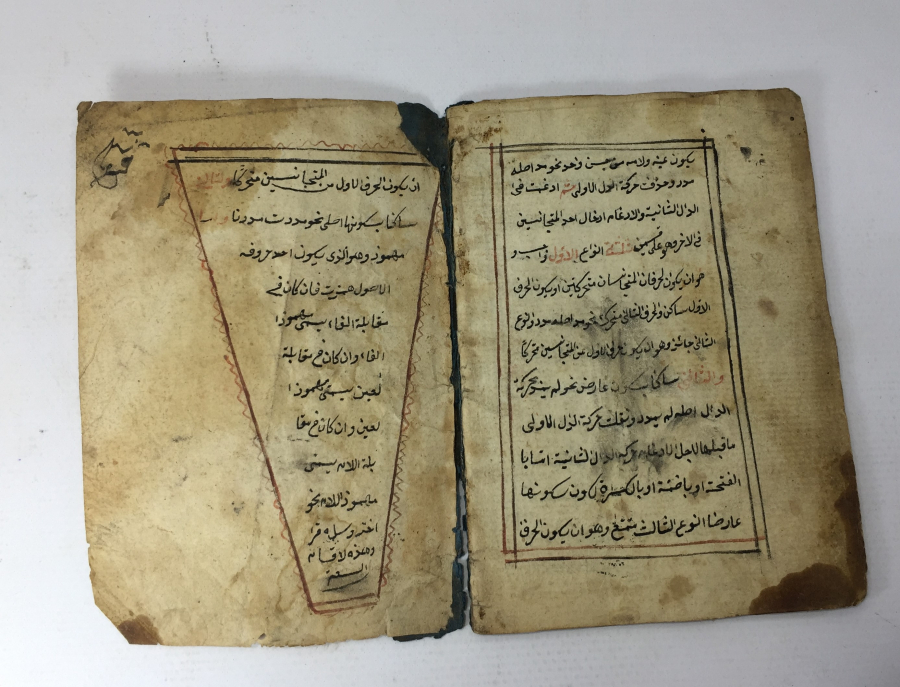 يكون عينه ولامه من جنس واحد نحو مد اصله
مدد وحذفت حركة الدال الاولى ثم ادغمت في
الدال الثانية والادغام ادخال احد المتجانسين
في الاخر وهو على قسمين ثلثة انواع الاول واجب و
هو ان يكون الحرفان المتجانسان متحركين او يكون الحرف
الاول ساكن والحرف الثاني متحركا نحو مد اصله مدد والنوع
الثاني جائز وهو ان يكون حرف الاول من المتجانسين متحركا
والثاني ساكنا بسكون عارض نحو لم يمد بحركة
الدال اصله لم يمدد ونقلت حركة الدال الاولى
ما قبلها لاجل الادغام حركة الدال الثانية اما با
الفتحة او باضمة او بالكسرة يكون سكونها
عارضا النوع الثالث ممتنع وهو ان يكون الحرف
ان يكون الحرف الاول من المتجانسين متحركا والثاني
ساكنا بسكونها اصلى نحو مددت مددنا
مهموز وهو الذي يكون احد حروفه
الاصول همزة فان كان في
مقابلة الفاء يسمى مهموز ا
الفاء وان كان في مقابلة
لعين يسمى مهموز ا
لعين وان كان في مقا
بلة الام يسمى
مهموز اللام نحو
اخذ وسئل قر
وهذه الاقسام